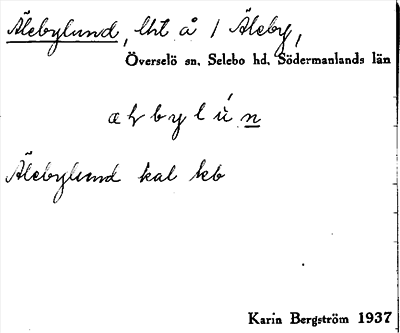 Älebylund, lht å 1 Äleby,
Överselö sn. Selebo hd. Södermanlands län
Älebylund kal kb
Karin Bergström 1937